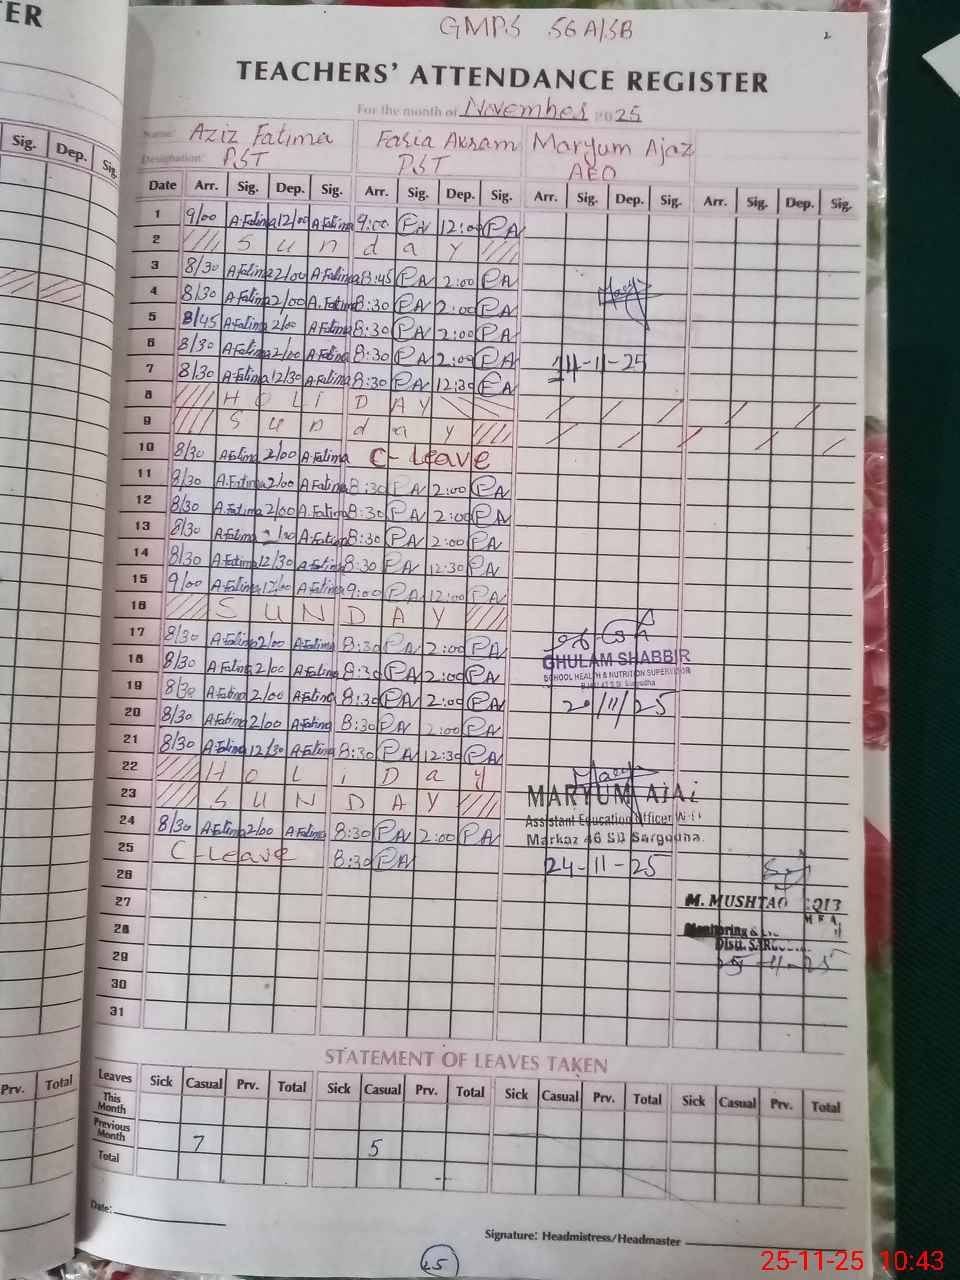 ER
GMPS 56 A/SB
2
TEACHERS' ATTENDANCE REGISTER
For the month of November 2025
Name: Aziz Fatima Fasia Akram Maryum Ajaz
Designation: PST PST AEO
Sig. Dep. Sig.
Date Arr. Sig. Dep. Sig. Arr. Sig. Dep. Sig. Arr. Sig. Dep. Sig. Arr. Sig. Dep. Sig.
1 9/00 A.Fatima 12/00 A.Fatima 9:00 PA 12:00 PA
2 S u n d a y
3 8/30 A.Fatima 2/00 A.Fatima 8:45 PA 2:00 PA
4 8/30 A.Fatima 2/00 A.Fatima 8:30 PA 2:00 PA
5 8/45 A.Fatima 2/00 A.Fatima 8:30 PA 2:00 PA
6 8/30 A.Fatima 2/00 A.Fatima 8:30 PA 2:00 PA
7 8/30 A.Fatima 12/30 A.Fatima 8:30 PA 12:30 PA 14-11-25
8 H O L i D A Y
9 S u n d a y
10 8/30 A.Fatima 2/00 A.Fatima C- Leave
11 8/30 A.Fatima 2/00 A.Fatima 8:30 PA 2:00 PA
12 8/30 A.Fatima 2/00 A.Fatima 8:30 PA 2:00 PA
13 8/30 A.Fatima 2/00 A.Fatima 8:30 PA 2:00 PA
14 8/30 A.Fatima 12/30 A.Fatima 8:30 PA 12:30 PA
15 9/00 A.Fatima 12/00 A.Fatima 9:00 PA 12:00 PA
16 S U N D A Y
17 8/30 A.Fatima 2/00 A.Fatima 8:30 PA 2:00 PA
18 8/30 A.Fatima 2/00 A.Fatima 8:30 PA 2:00 PA
GHULAM SHABBIR
SCHOOL HEALTH & NUTRITION SUPERVISOR
Sargodha
19 8/30 A.Fatima 2/00 A.Fatima 8:30 PA 2:00 PA
20/11/25
20 8/30 A.Fatima 2/00 A.Fatima 8:30 PA 2:00 PA
21 8/30 A.Fatima 12/30 A.Fatima 8:30 PA 12:30 PA
22 H o L i D a y
23 S U N D A Y
MARYUM AJAZ
Assistant Education Officer
Markaz 46 SB Sargodha.
24 8/30 A.Fatima 2/00 A.Fatima 8:30 PA 2:00 PA
25 C-Leave 8:30 PA 24-11-25
26
27 M. MUSHTAQ
28 Monitoring &
Distt. SARGODHA
29 25-11-25
30
31
STATEMENT OF LEAVES TAKEN
Prv. Total
Leaves Sick Casual Prv. Total Sick Casual Prv. Total Sick Casual Prv. Total Sick Casual Prv. Total
This Month
Previous Month 7 5
Total
Date:
Signature: Headmistress/Headmaster
25
25-11-25 10:43